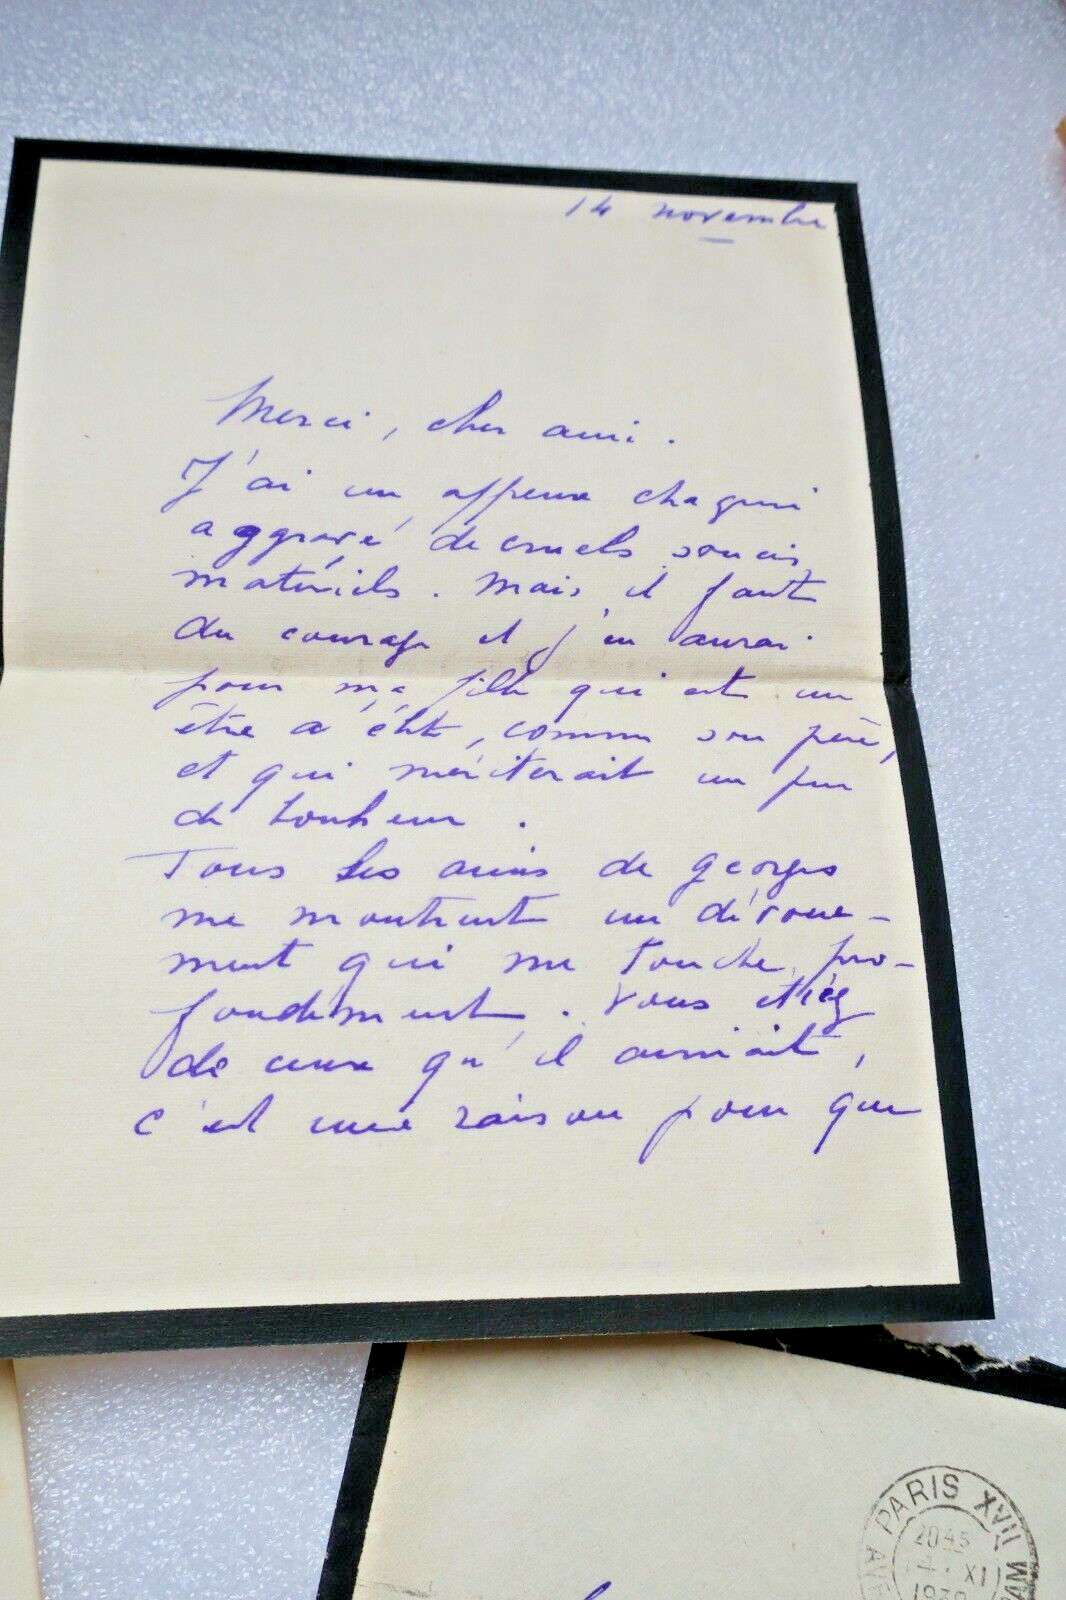 14 novembre
Merci, cher ami.
J'ai un affreux chagrin
aggravé de cruels soucis
matériels. Mais il faut
du courage et j'en aurai
pour ma fille qui est un
être d'élite, comme son père,
et qui mériterait un peu
de bonheur.
Tous les amis de Georges
me montrent un dévoue-
ment qui me touche pro-
fondément. Vous étiez
de ceux qu'il aimait,
c'est une raison pour que
PARIS XVII
20 45
XI